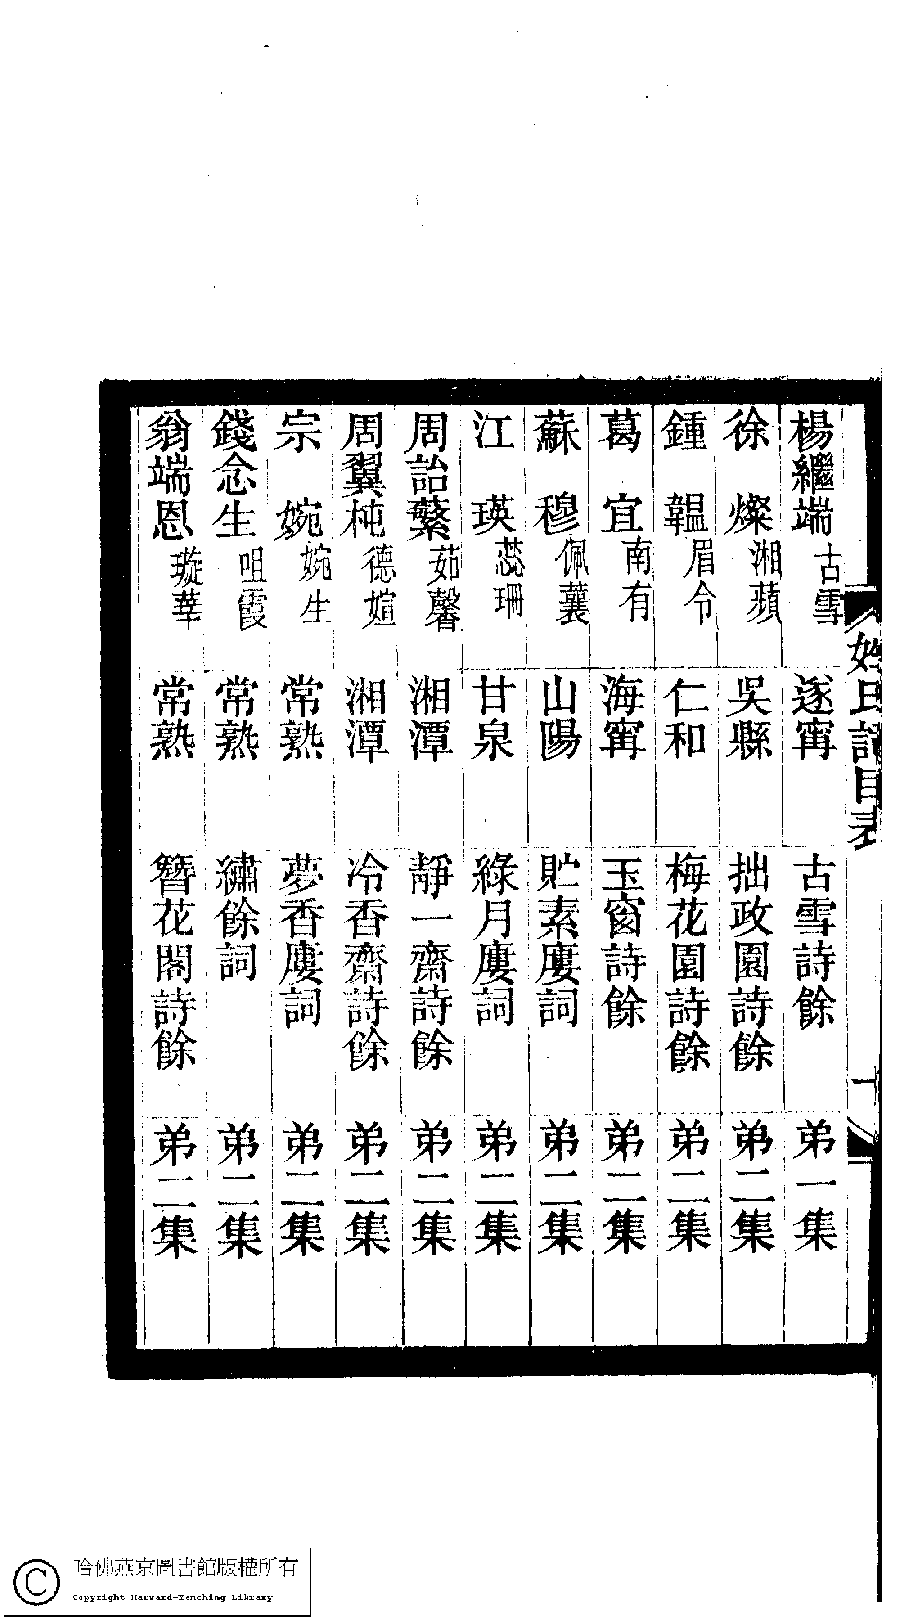 楊繼端 古雪 遂甯 古雪詩餘 弟一集
徐燦 湘蘋 吳縣 拙政園詩餘 弟二集
鍾韞 眉令 仁和 梅花園詩餘 弟二集
葛宜 南有 海甯 玉窗詩餘 弟二集
蘇穆 佩蘘 山陽 貯素廔詞 弟二集
江瑛 蕊珊 甘泉 綠月廔詞 弟二集
周詒蘩 茹馨 湘潭 靜一齋詩餘 弟二集
周翼杶 德媗 湘潭 冷香齋詩餘 弟二集
宗婉 婉生 常熟 夢香廔詞 弟二集
錢念生 咀霞 常熟 繡餘詞 弟二集
翁端恩 璇華 常熟 簪花閣詩餘 弟二集
哈佛燕京圖書館版權所有
Copyright Harvard-Yenching Library